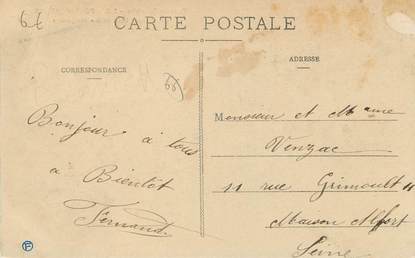 6€
CARTE POSTALE
CORRESPONDANCE
ADRESSE
66
Bonjour à tous
a Bientôt
Fernand
Monsieur et Mme
Venzac
11 rue Grimoult
Maison Alfort
Seine